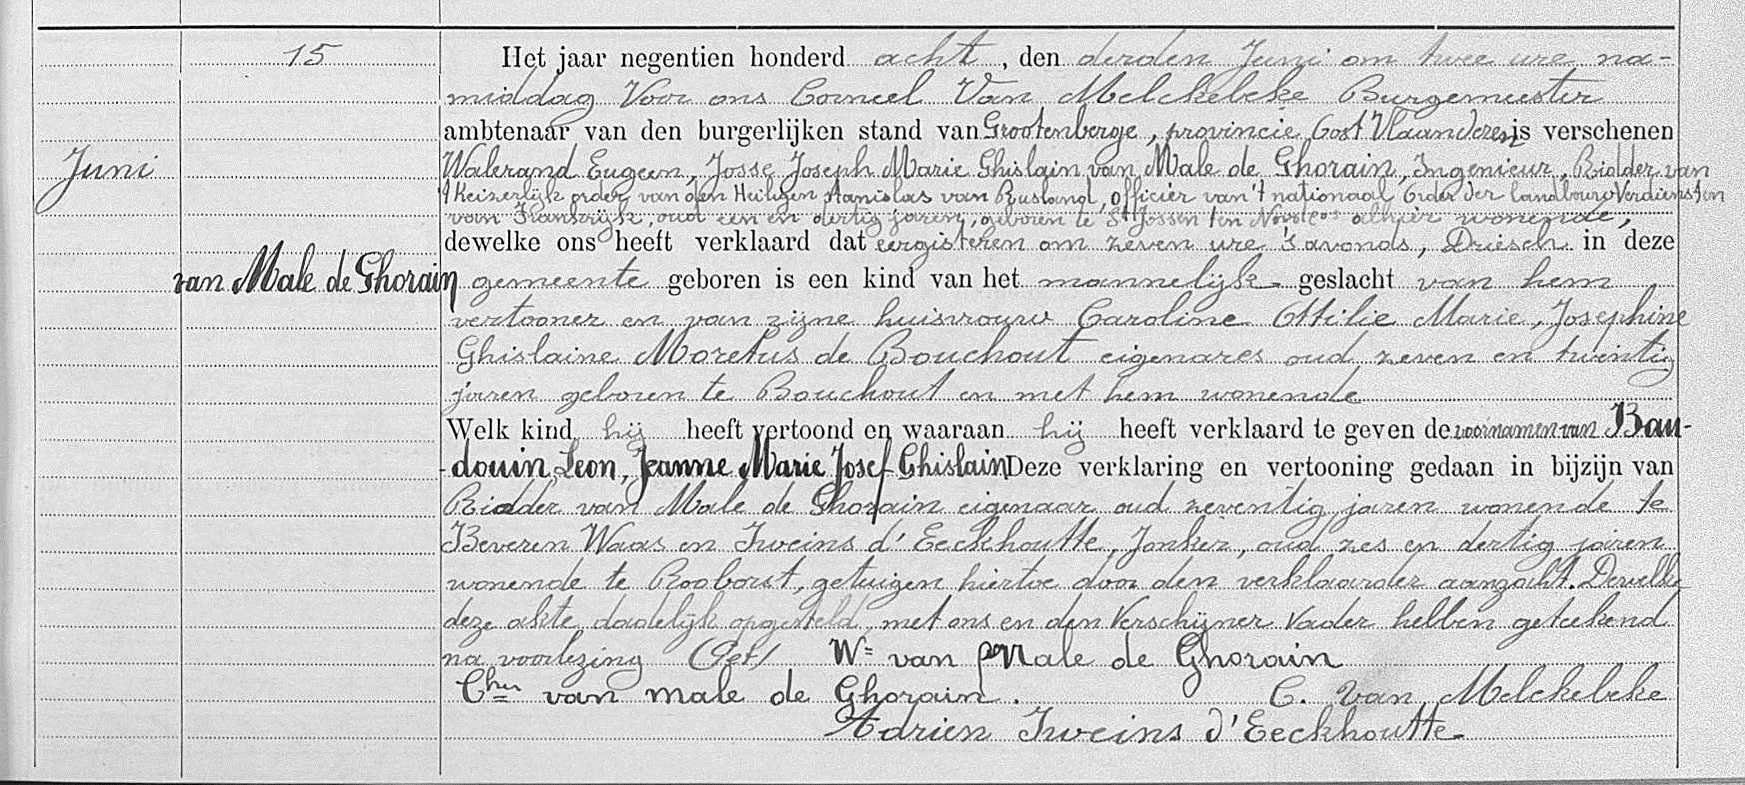 15
Het jaar negentien honderd acht, den derden Juni om twee ure na-
middag Voor ons Corneel Van Melckebeke Burgemeester
ambtenaar van den burgerlijken stand van Grootenberge, provincie Oost Vlaanderen is verschenen
Juni
Walerand Eugeen, Josse Joseph Marie Ghislain van Male de Ghorain, Ingenieur, Ridder van
't Keizerlijk order van den Heiligen Stanislas van Rusland, officier van 't nationaal Order der landbouw Verdiensten
van Frankrijk, oud een en dertig jaren, geboren te St Jossen ten Noode alhier wonende,
dewelke ons heeft verklaard dat eergisteren om zeven ure 's avonds, Driesch in deze
van Male de Ghorain
gemeente geboren is een kind van het mannelijk geslacht van hem
vertooner en van zijne huisvrouw Caroline Ottilie Marie, Josephine
Ghislaine Moretus de Bouchout eigenares oud zeven en twintig
jaren geboren te Bouchout en met hem wonende
Welk kind hij heeft vertoond en waaraan hij heeft verklaard te geven de voornamen van Bau-
douin, Leon, Jeanne Marie Josef Ghislain Deze verklaring en vertooning gedaan in bijzijn van
Ridder van Male de Ghorain eigenaar oud zeventig jaren wonende te
Beveren Waas en Iweins d'Eeckhoutte, Jonker, oud zes en dertig jaren
wonende te Rooborst, getuigen hiertoe door den verklaarder aanzocht. Dewelke
deze akte dadelijk opgesteld, met ons en den Verschijner Vader hebben geteekend
na voorlezing (Get) Wn van Male de Ghorain
Cher van male de Ghorain. C. Van Melckebeke
Adrien Iweins d'Eeckhoutte